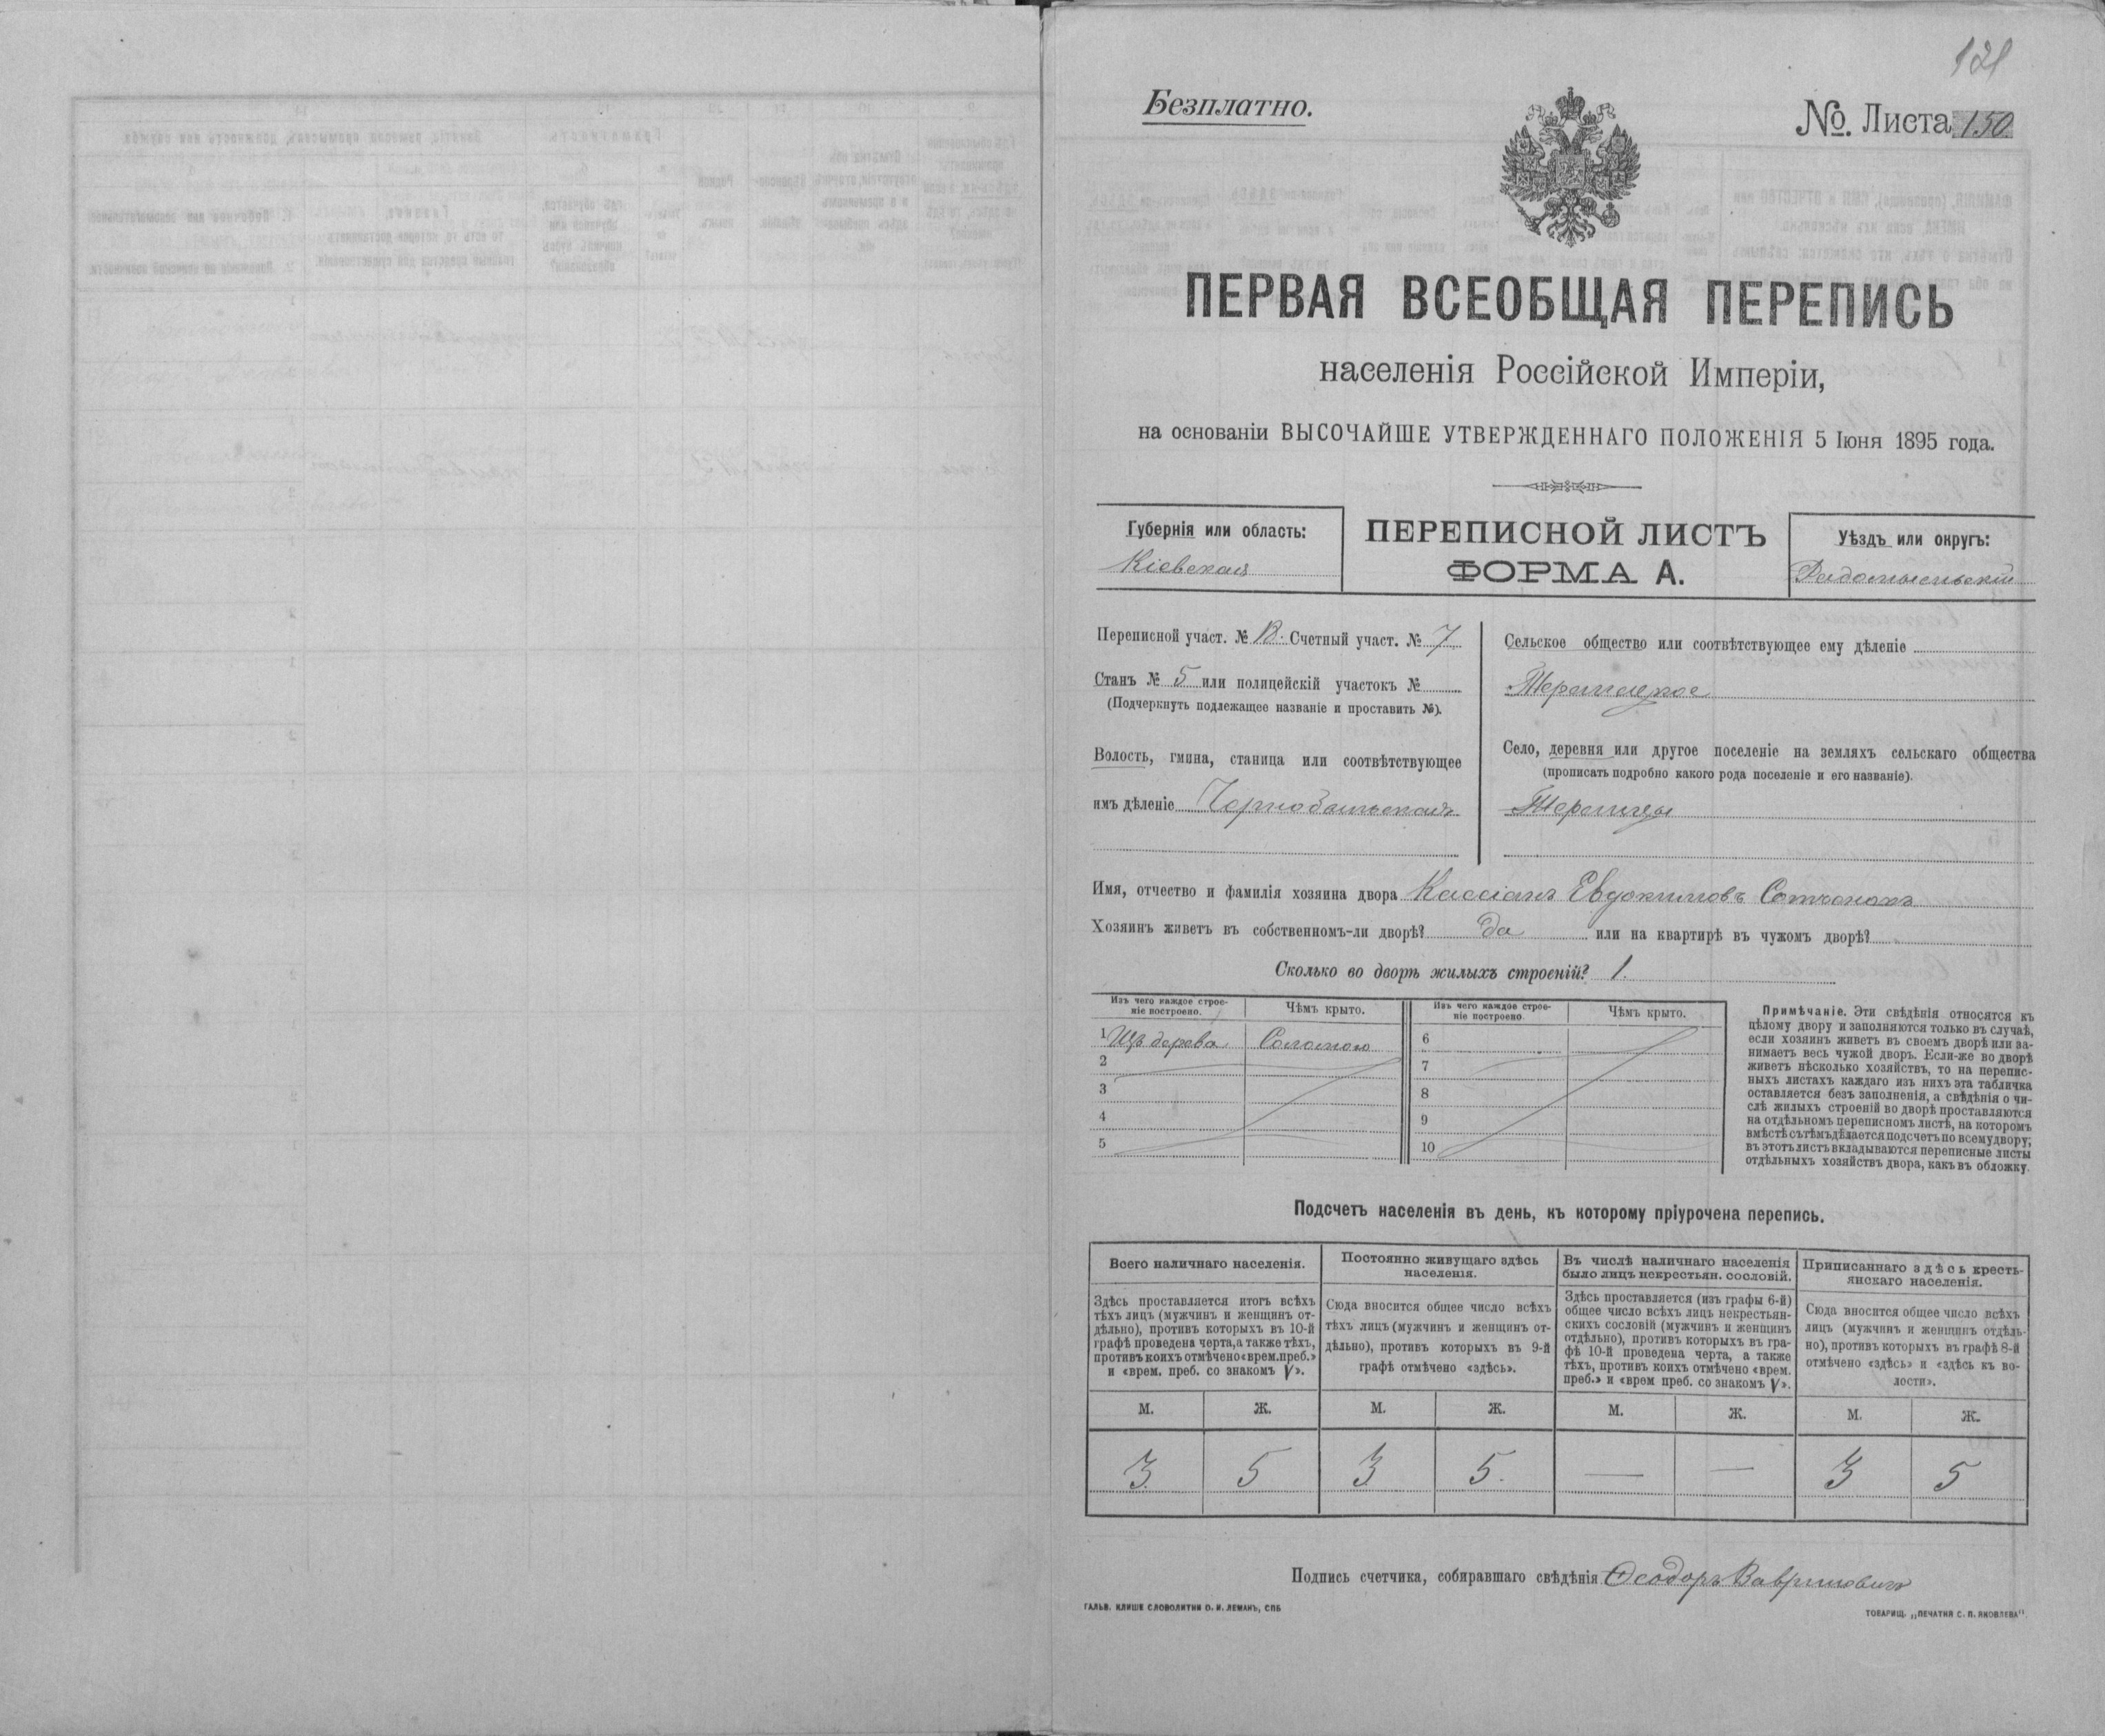 121
Безплатно.
№. Листа 150
ПЕРВАЯ ВСЕОБЩАЯ ПЕРЕПИСЬ
населенія Россійской Имперіи,
на основаніи ВЫСОЧАЙШЕ УТВЕРЖДЕННАГО ПОЛОЖЕНІЯ 5 Іюня 1895 года.
Губернія или область:
Кіевская
ПЕРЕПИСНОЙ ЛИСТЪ
ФОРМА А.
Уѣздъ или округъ:
Радомысльскій
Переписной участ. № Счетный участ. № 7
Станъ № 5 или полицейскій участокъ №
(Подчеркнуть подлежащее названіе и проставить №).
Волость, гмина, станица или соотвѣтствующее
имъ дѣленіе Чернобыльская
Сельское общество или соотвѣтствующее ему дѣленіе
Село, деревня или другое поселеніе на земляхъ сельскаго общества
(прописать подробно какого рода поселеніе и его названіе).
Имя, отчество и фамилія хозяина двора Кассіанъ Евдокимовъ
Хозяинъ живетъ въ собственномъ-ли дворѣ? да или на квартирѣ въ чужомъ дворѣ?
Сколько во дворѣ жилыхъ строеній? 1.
Изъ чего каждое строе-
ніе построено.
Чѣмъ крыто.
Изъ чего каждое строе-
ніе построено
Чѣмъ крыто.
1 Изъ дерева Соломою
2
3
4
5
6
7
8
9
10
Примѣчаніе. Эти свѣдѣнія относятся къ
цѣлому двору и заполняются только въ случаѣ,
если хозяинъ живетъ въ своемъ дворѣ или за-
нимаетъ весь чужой дворъ. Если-же во дворѣ
живетъ нѣсколько хозяйствъ, то на перепис-
ныхъ листахъ каждаго изъ нихъ эта табличка
оставляется безъ заполненія, а свѣдѣнія о чи-
слѣ жилыхъ строеній во дворѣ проставляются
на отдѣльномъ переписномъ листѣ, на которомъ
вмѣстѣ съ тѣмъ дѣлается подсчетъ по всему двору;
въ этотъ листъ вкладываются переписные листы
отдѣльныхъ хозяйствъ двора, какъ въ обложку.
Подсчетъ населенія въ день, къ которому пріурочена перепись.
Всего наличнаго населенія.
Здѣсь проставляется итогъ всѣхъ
тѣхъ лицъ (мужчинъ и женщинъ от-
дѣльно), противъ которыхъ въ 10-й
графѣ проведена черта, а также тѣхъ,
противъ коихъ отмѣчено «врем. преб.»
и «врем. преб. со знакомъ V».
Постоянно живущаго здѣсь
населенія.
Сюда вносится общее число всѣхъ
тѣхъ лицъ (мужчинъ и женщинъ от-
дѣльно), противъ которыхъ въ 9-й
графѣ отмѣчено «здѣсь».
Въ числѣ наличнаго населенія
было лицъ некрестьян. сословій.
Здѣсь проставляется (изъ графы 6-й)
общее число всѣхъ лицъ некрестьян-
скихъ сословій (мужчинъ и женщинъ
отдѣльно), противъ которыхъ въ гра-
фѣ 10-й проведена черта, а также
тѣхъ, противъ коихъ отмѣчено «врем.
преб.» и «врем преб. со знакомъ V».
Приписаннаго здѣсь кресть-
янскаго населенія.
Сюда вносится общее число всѣхъ
лицъ (мужчинъ и женщинъ отдѣль-
но), противъ которыхъ въ графѣ 8-й
отмѣчено «здѣсь» и «здѣсь къ во-
лости».
М. Ж. М. Ж. М. Ж. М. Ж.
3 5 3 5. — — 3 5
Подпись счетчика, собиравшаго свѣдѣнія Ѳеодоръ
ГАЛЬВ. КЛИШЕ СЛОВОЛИТНИ О. И. ЛЕМАНЪ, СПБ
ТОВАРИЩ. „ПЕЧАТНЯ С. П. ЯКОВЛЕВА“.